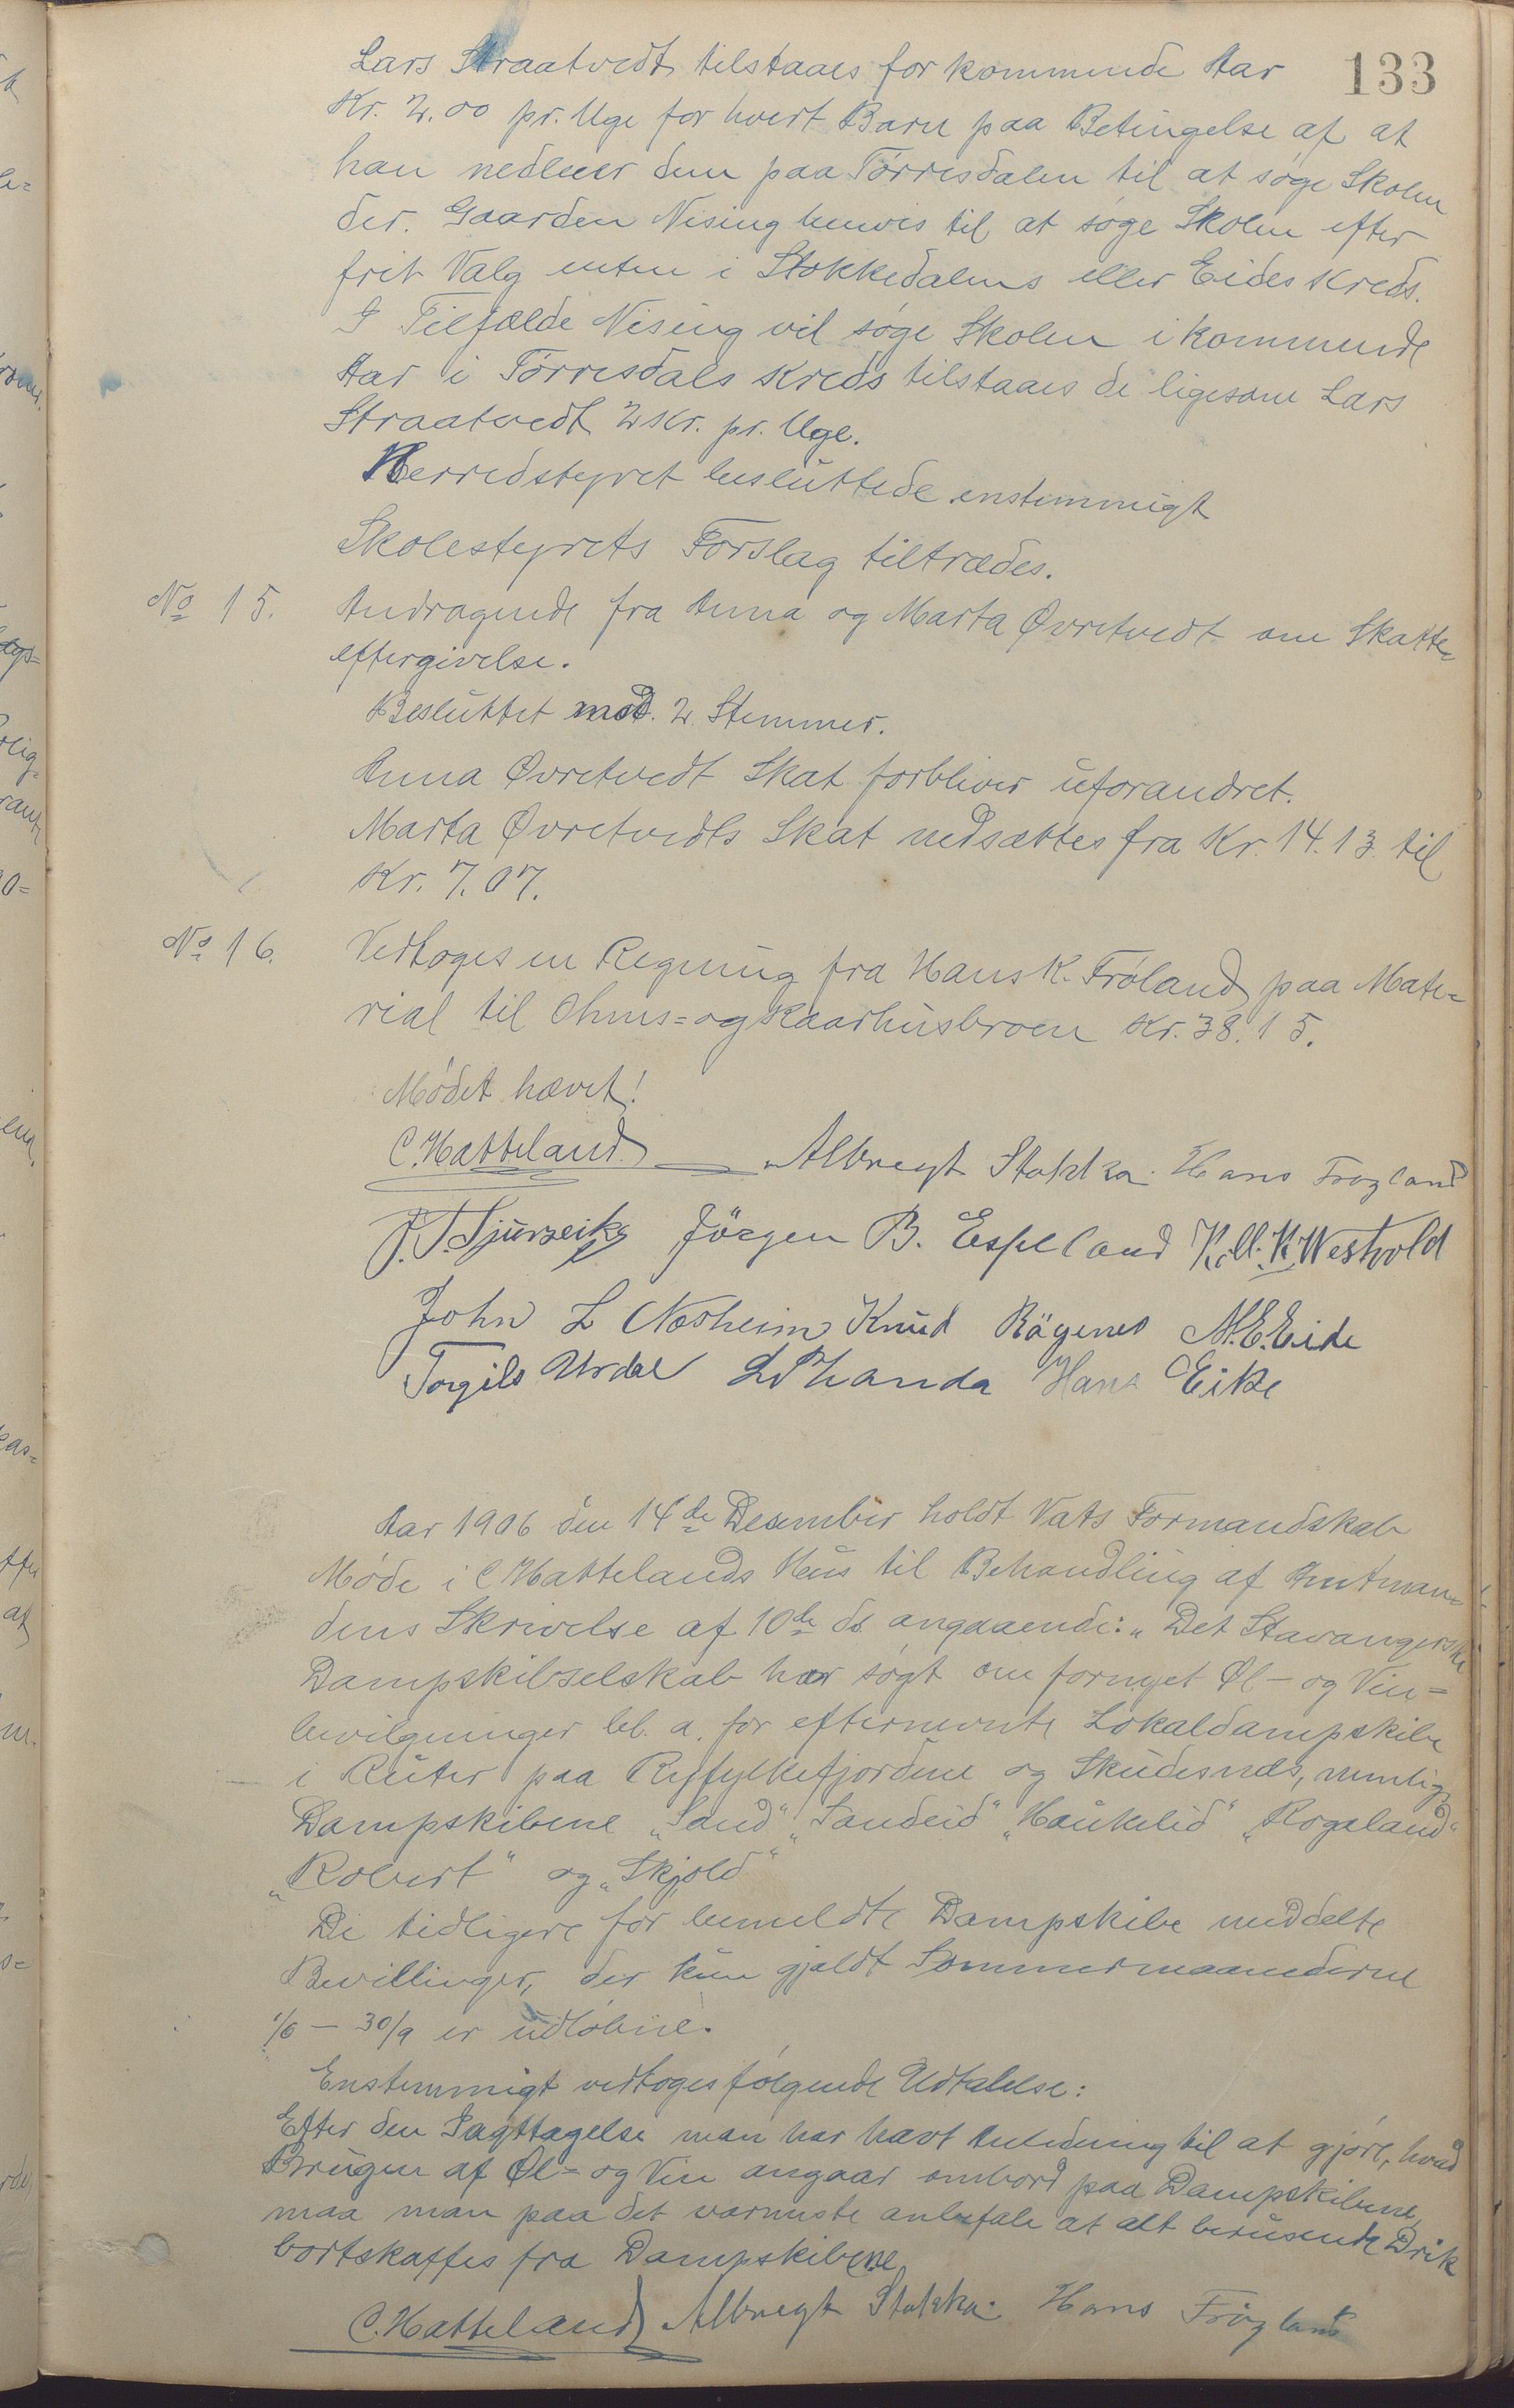 133
Lars Straatvedt tilstaaes for kommende Aar
Kr. 2.00 pr. Uge for hvert Barn paa Betingelse af at
han nedleier dem paa Tørresdalen til at søge Skolen
der. Gaarden Nising henvis til at søge Skolen efter
frit Valg enten i Stokkedalens eller Eides Kreds.
I Tilfælde Nising vil søge Skolen i kommende
Aar i Tørresdals Kreds tilstaaes de ligesom Lars
Straatvedt 2 Kr. pr. Uge.
Herredstyret besluttede enstemmigt
Skolestyrets Forslag tiltrædes.
No 15. Andragende fra Anna og Marta Øvretvedt om Skatte-
eftergivelse.
Besluttet mod. 2 Stemmer.
Anna Øvretvedt Skat forbliver uforandret.
Marta Øvretvedts Skat nedsættes fra Kr. 14.13 til
Kr. 7.07.
No 16. Vedtoges en Regning fra Hans K. Frøland paa Mate-
rial til Ohms= og Kaarhusbroen Kr. 38.15.
Mødet hævet!
C. Hatteland Albregt Stakka. Hans Frøgland
Jörgen B. Espeland K. Westvold
John L Nosheim Knud Rägenes M. E. Eide
Torgils Urdal Hans Eike
Aar 1906 den 14de Desember holdt Vats Formandskab
Møde i C Hattelands Hus til Behandling af Amtman-
dens Skrivelse af 10de ds. angaaende: „Det Stavangerske
Dampskibselskab har søgt om fornyet Øl- og Vin=
bevilgninger bl. a. for efternevnte Lokaldampskibe
i Ruter paa Ryfylkefjordene og Skudesnæs, nemlig
Dampskibene „Sand“ „Sandeid“ „Haukelid“ „Rogaland“
„Robert“ og „Skjold“
De tidligere for bemeldte Dampskibe meddelte
Bevillinger, der kun gjaldt Sommermaanederne
1/6 – 30/9 er udløbne.
Enstemmigt vedtoges følgende Udtalelse:
Efter den Iagttagelse man har havt Anledning til at gjøre, hvad
Brugen af Øl= og Vin angaar ombord paa Dampskibene,
maa man paa det varmeste anbefale at alt berusende Drik
bortskaffes fra Dampskibene
C. Hatteland Albregt Stakka. Hans Frøgland